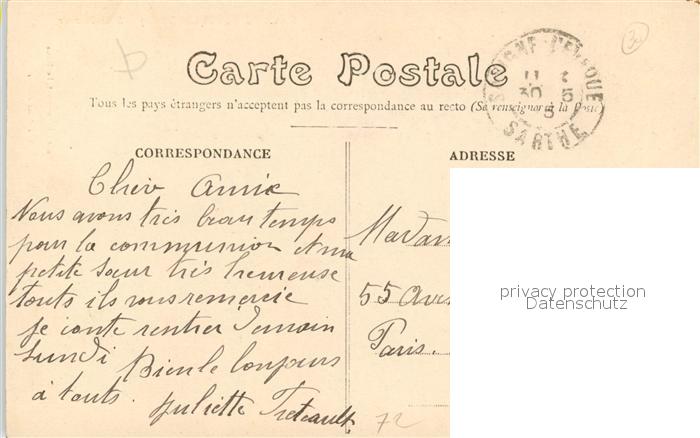 Carte Postale
Tous les pays étrangers n'acceptent pas la correspondance au recto (Se renseigner à la Poste)
SARTHE
CORRESPONDANCE
ADRESSE
Chère Amie
Nous avons très beau temps
pour la communion et ma
petite sœur très heureuse
touts ils vous remercie
je conte rentrer demain
lundi Bien le bonjours
à touts.
Juliette
Madam
55 Ave
Paris.
privacy protection
Datenschutz
72
3